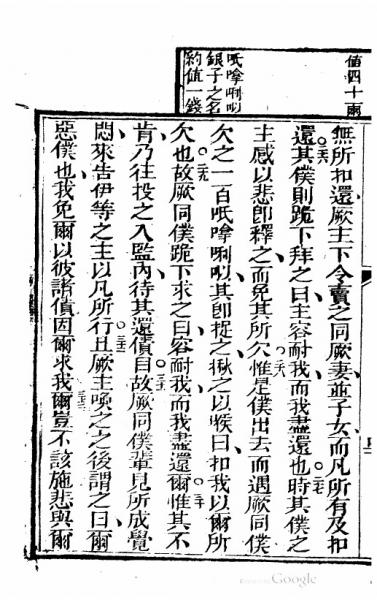 值四十兩
呧嗱唎
銀子之名
約值一錢
無所扣還厥主下令賣之同厥妻並子女而凡所有及扣
還〇二六其僕則跪下拜之曰主容耐我而我盡還也〇二七時其僕之
主感以悲卽釋之而免其所欠〇二八惟是僕出去而遇厥同僕
欠之一百呧嗱唎其卽捉之揪之以喉曰扣我以爾所
欠也〇二九故厥同僕跪下求之曰容耐我而我盡還爾〇三十惟其不
肯乃往投之入監內待其還債〇三一自故厥同僕輩見所成覺
悶來告伊等之主以凡所行〇三二且厥主喚之之後謂之曰爾
惡僕也我免爾以彼諸債因爾求我〇三三爾豈不該施悲與爾
Google